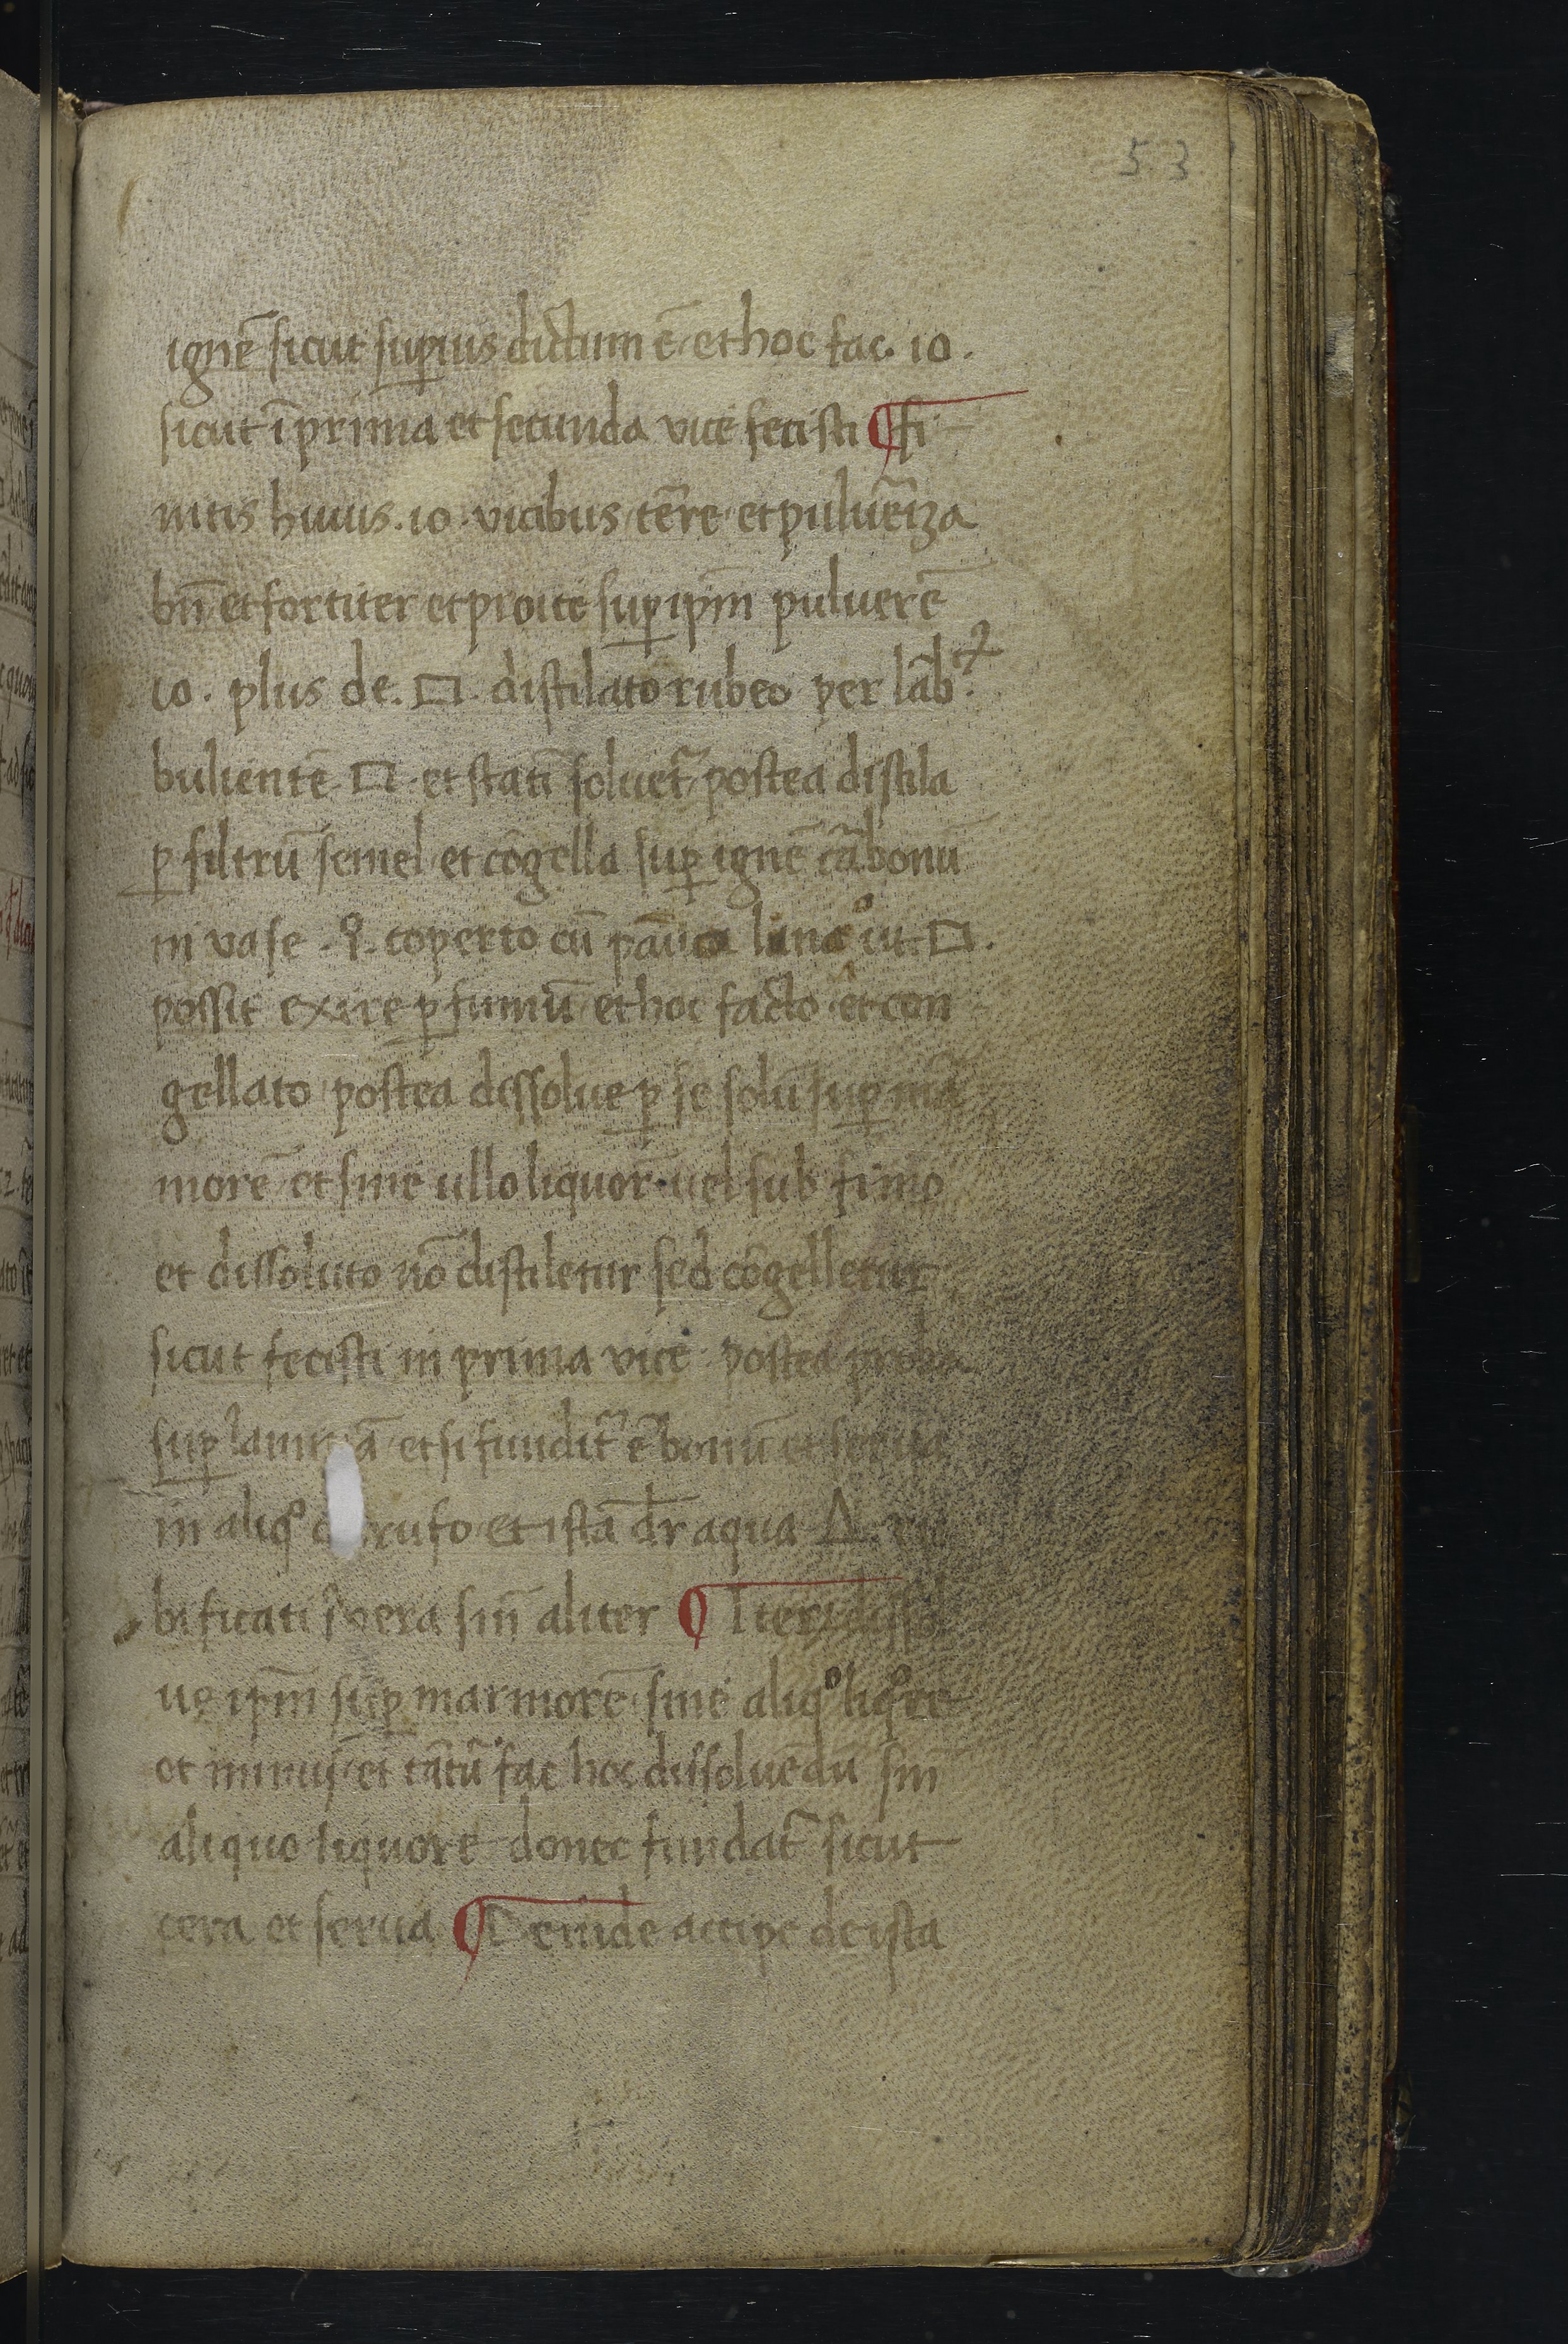 53
ignē sicut superius dictum ē et hoc fac. 10.
sicut ī prima et secunda vice fecisti ¶ fi-
nitis huius. 10. vicibus tēre et puluēiza
bn̄ et fortiter et proice suꝑ ip̄m puluerē
10. plus de. □. distilato rubeo per lāb
bulientē □. et statī soluet᷑ postea distila
ꝑ filtrū semel et cōgella suꝑ ignē cābonū
in vase. coperto cū pāuca lana ut. □.
possit exire ꝑ fumū et hoc facto et con
gellato postea dissolue ꝑ se solū suꝑ mā
morē et sine ullo liquor̄ uel sub fimo
et dissoluto nō distiletur sed cōgelletur
sicut fecisti in prima vice postea proba
suꝑ et si fundit᷑ ē bonū et serua
in aliqͦ et ista dr̄ aqua Δ.
bificati sin̄ aliter ¶ Iterū dissol
ue ip̄m suꝑ marmorē sine aliqͦ liqͦre
et minus et tātū fac hoc dissoluēdū sin̄
aliquo liquore donec fundat᷑ sicut
cera et serua ¶ Deinde accipe de ista